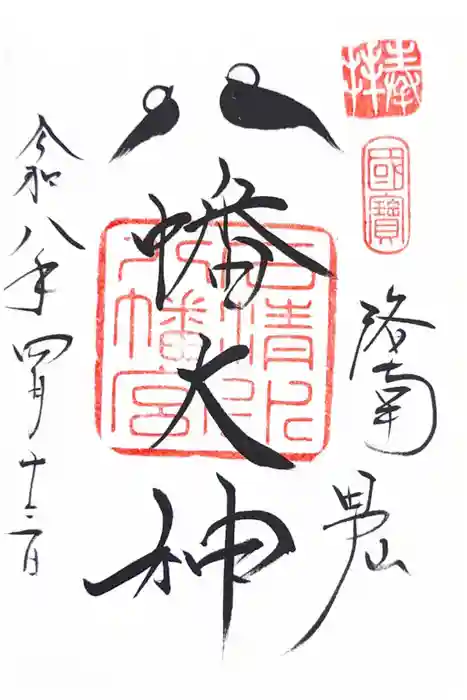 奉拝
國寶
洛南
男山
八幡大神
石清水八幡宮
令和八年四月十二日